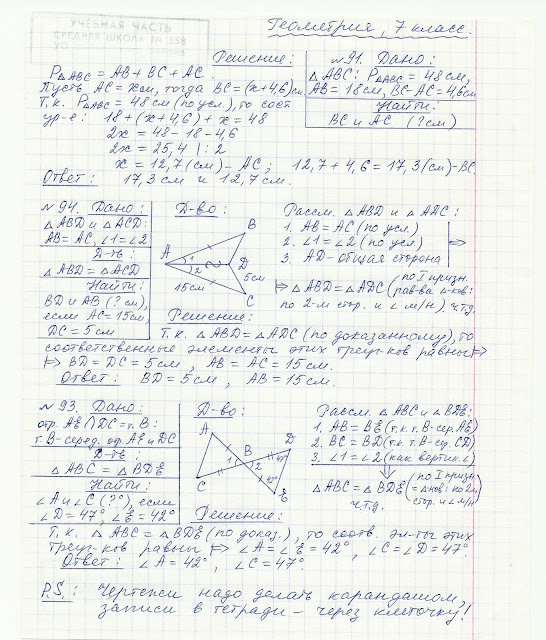 УЧЕБНАЯ ЧАСТЬ
СРЕДНЯЯ ШКОЛА № 558
Геометрия, 7 класс.
Решение:
P△ABC = AB + BC + AC.
Пусть AC = x см, тогда BC = (x+4,6) см.
Т.к. P△ABC = 48 см (по усл), то сост
ур-е: 18 + (x+4,6) + x = 48
2x = 48 - 18 - 4,6
2x = 25,4 |: 2
x = 12,7 (см) - AC; 12,7 + 4,6 = 17,3 (см) - BC.
Ответ: 17,3 см и 12,7 см.
№ 91. Дано:
△ABC: P△ABC = 48 см,
AB = 18 см, BC - AC = 4,6 см
Найти:
BC и AC (? см)
№ 94. Дано:
△ABD и △ACD:
AB = AC, ∠1 = ∠2
Д-ть
△ABD = △ACD
Найти:
BD и AB (? см),
если AC = 15 см
DC = 5 см
Д-во:
A
B
D
C
1
2
5 см
15 см
Рассм. △ABD и △ADC:
1. AB = AC (по усл.)
2. ∠1 = ∠2 (по усл)
3. AD - общая сторона
⇒
⇒ △ABD = △ADC (по I призн. рав-ва △-ков:
по 2-м стор. и ∠ м/н). ч.т.д.
Решение:
Т.к. △ABD = △ADC (по доказанному), то
соответственные элементы этих треуг-ков равны ⇒
⇒ BD = DC = 5 см, AB = AC = 15 см.
Ответ: BD = 5 см, AB = 15 см.
№ 93. Дано:
отр. AE ∩ DC = т. B:
т. B - серед. отр. AE и DC
Д-ть:
△ABC = △BDE
Найти:
∠A и ∠C (?°), если
∠D = 47°, ∠E = 42°
Д-во:
A
B
D
C
E
1
2
47°
42°
Рассм. △ABC и △BDE:
1. AB = BE (т.к. т. B - сер. AE)
2. BC = BD (т.к. т. B - сер. CD)
3. ∠1 = ∠2 (как вертик. ∠)
△ABC = △BDE (по I призн.
△-ков: по 2м
стор. и ∠ м/н
ч.т.д.
Решение:
Т.к. △ABC = △BDE (по доказ.), то соотв. эл-ты этих
треуг-ков равны ⇒ ∠A = ∠E = 42°, ∠C = ∠D = 47°.
Ответ: ∠A = 42°, ∠C = 47°.
P.S.: Чертежи надо делать карандашом,
записи в тетради - через клеточку!